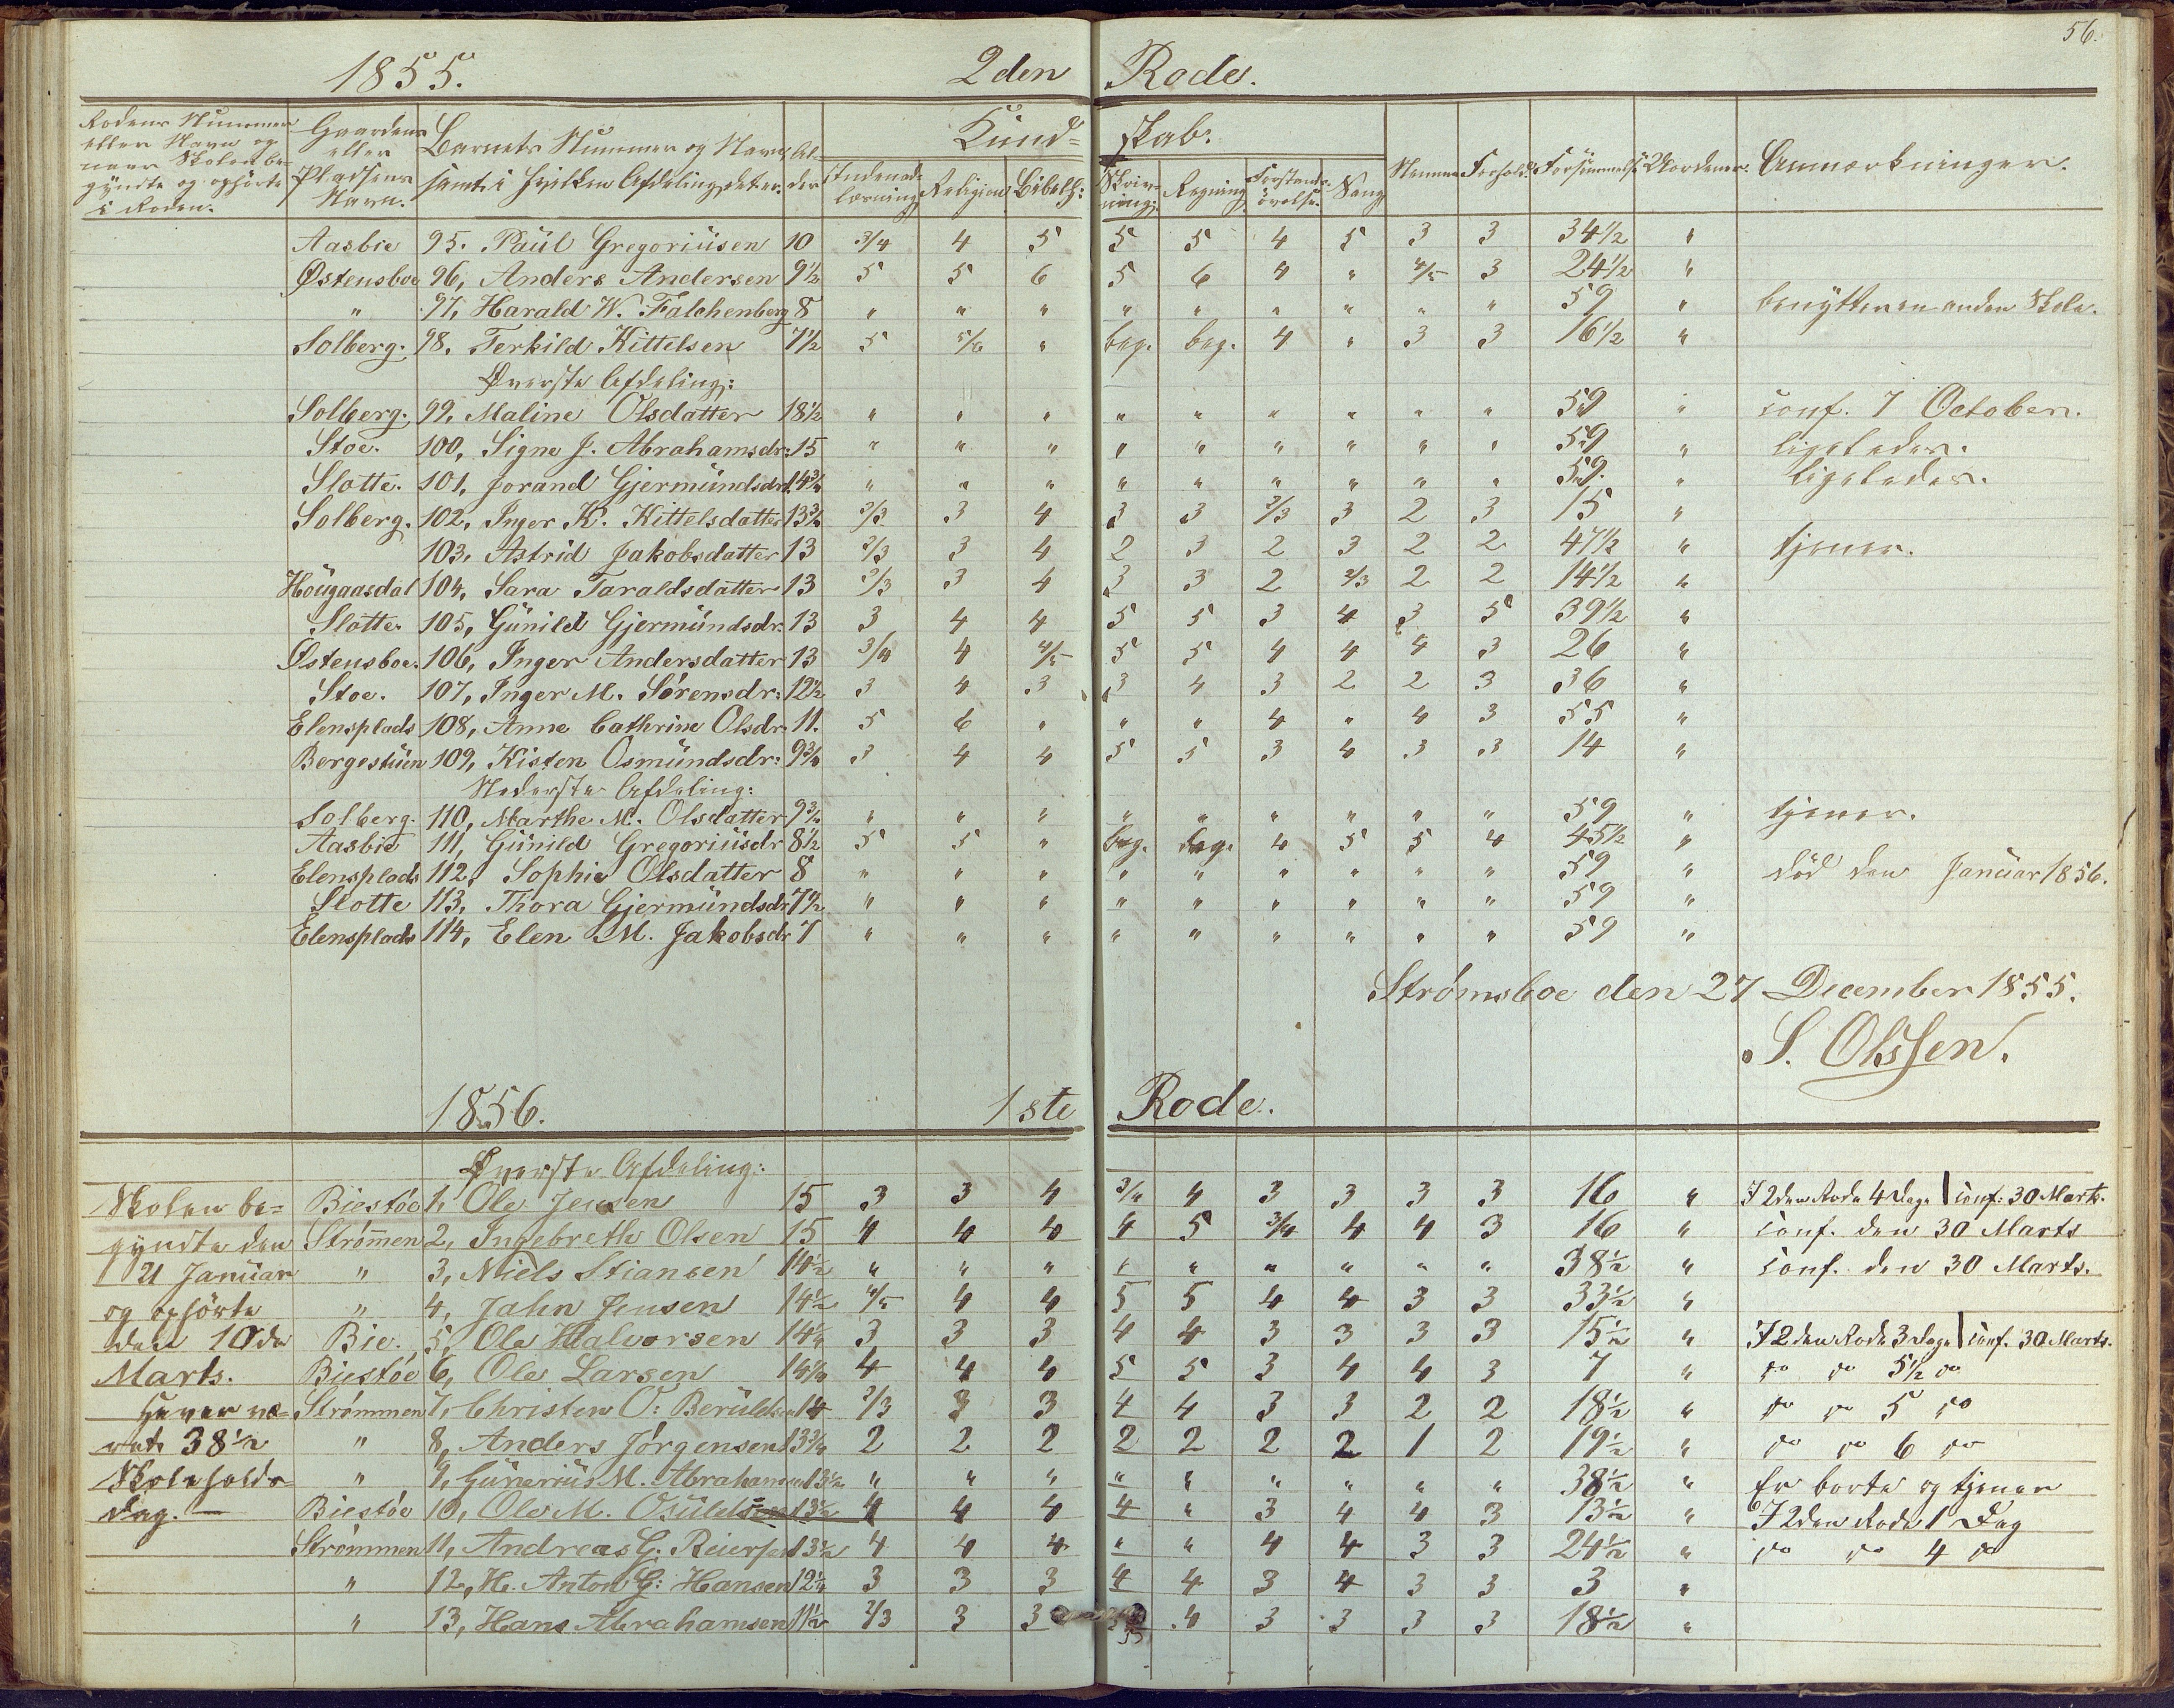 56.
1855. 2den Rode.
Rodens Nummer eller Navn og naar Skolen begyndte og ophörte i Roden. | Gaardens eller Pladsens Navn. | Barnets Nummer og Navn, samt i hvilken Afdeling det er. | Alder | Kundskab: Indenadlæsning | Religion | Bibelh: | Skrivning: | Regning | Forstandsövelse. | Sang | Nemme | Forhold | Forsömmelse | Uordener. | Anmærkninger.
Aasbie 95. Paul Gregoriusen 10 3/4 4 5 5 5 4 5 3 3 34½ "
Østensboe 96, Anders Andersen 9½ 5 5 6 5 6 4 " 4/5 3 24½ "
" 97, Harald W. Falchenberg 8 " " " " " " " " " 59 " benytter en anden Skole.
Solberg. 98. Terkild Kittelsen 7½ 5 5/6 " beg. beg. 4 " 3 3 16½ "
Øverste Afdeling:
Solberg. 99, Maline Olsdatter 18½ " " " " " " " " " 59 " conf. 7 October.
Stoe. 100, Signe J. Abrahamsdr: 15 " " " " " " " " " 59 " ligeledes.
Slotte. 101, Jorand Gjermundsdr 14¾ " " " " " " " " " 59. " ligeledes.
Solberg. 102, Inger K. Kittelsdatter 13¾ 2/3 3 4 3 3 2/3 3 2 3 15 "
103, Astrid Jakobsdatter 13 2/3 3 4 2 3 2 3 2 2 47½ " tjener.
Hougaasdal 104, Sara Taraldsdatter 13 2/3 3 4 3 3 2 2/3 2 2 14½ "
Slotte 105, Gunild Gjermundsdr: 13 3 4 4 5 5 3 4 3 5 39½ "
Østensboe. 106, Inger Andersdatter 13 3/4 4 4/5 5 5 4 4 4 3 26 "
Stoe. 107, Inger M. Sörensdr: 12½ 3 4 3 3 4 3 2 2 3 36 "
Elensplads 108, Anne Cathrine Olsdr. 11. 5 6 " " " 4 " 4 3 55 "
Bergestuen 109, Kisten Osmundsdr: 9¾ 3 4 4 5 5 3 4 3 3 14 "
Nederste Afdeling:
Solberg. 110, Marthe M. Olsdatter 9¾ " " " " " " " " " 59 " tjener.
Aasbie 111, Gunild Gregoriusdr 8½ 5 5 " beg. beg. 4 5 5 4 45½ "
Elensplads 112, Sophie Olsdatter 8 " " " " " " " " " 59 " död den Januar 1856.
Slotte 113, Thora Gjermundsdr 7½ " " " " " " " " " 59 "
Elensplads 114, Elen M. Jakobsdr 7 " " " " " " " " " 59 "
Strømsboe den 27 December 1855.
S. Olssen.
1856. 1ste Rode.
Øverste Afdeling:
Skolen be= Biestöe 1, Ole Jensen 15 3 3 4 3/4 4 3 3 3 3 16 " I 2den Rode 4 Dage | conf: 30 Marts.
gyndte den Strömmen 2, Ingebreth Olsen 15 4 4 4 4 5 3/4 4 4 3 16 " conf. den 30 Marts
21 Januar " 3, Niels Stiansen 14½ " " " " " " " " " 38½ " conf. den 30 Marts.
og ophörte " 4, Jahn Jensen 14½ 4/5 4 4 5 5 4 4 3 3 33½ "
den 10de Bie. 5, Ole Halvorsen 14¼ 3 3 3 4 4 3 3 3 3 15½ " I 2den Rode 3 Dage | conf. 30 Marts.
Marts. Biestöe 6, Ole Larsen 14¼ 4 4 4 5 5 3 4 4 3 7 " do do 5½ do
Strömmen 7, Christen O: Beruldsen 14 2/3 3 3 4 4 3 3 2 2 18½ " do do 5 do
38½ " 8, Anders Jörgensen 13¾ 2 2 2 2 2 2 2 1 2 19½ " do do 6 do
Skoleholds= " 9, Gunerius M. Abrahamsen 13½ " " " " " " " " " 38½ " Er borte og tjener
dag. — Biestöe 10, Ole M. Osuldsen 13½ 4 4 4 4 " 3 4 4 3 13½ " I 2den Rode 1 Dag
Strömmen 11, Andreas G. Reiersen 13½ 4 4 4 " " 4 4 3 3 24½ " do do 4 do
" 12, H. Anton G: Hansen 12¼ 3 3 3 4 4 3 4 3 3 3 "
" 13, Hans Abrahamsen 11½ 2/3 3 3 4 3 3 3 3 18½ "